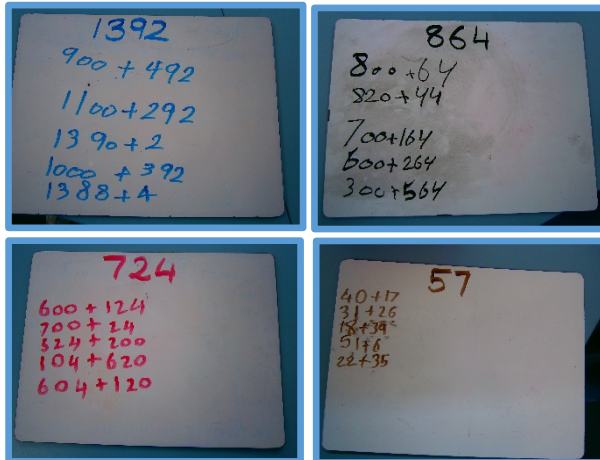 1392
900 + 492
1100 + 292
1390 + 2
1000 + 392
1388 + 4
864
800 + 64
820 + 44
700 + 164
600 + 264
300 + 564
724
600 + 124
700 + 24
524 + 200
104 + 620
604 + 120
57
40 + 17
31 + 26
18 + 39
51 + 6
22 + 35